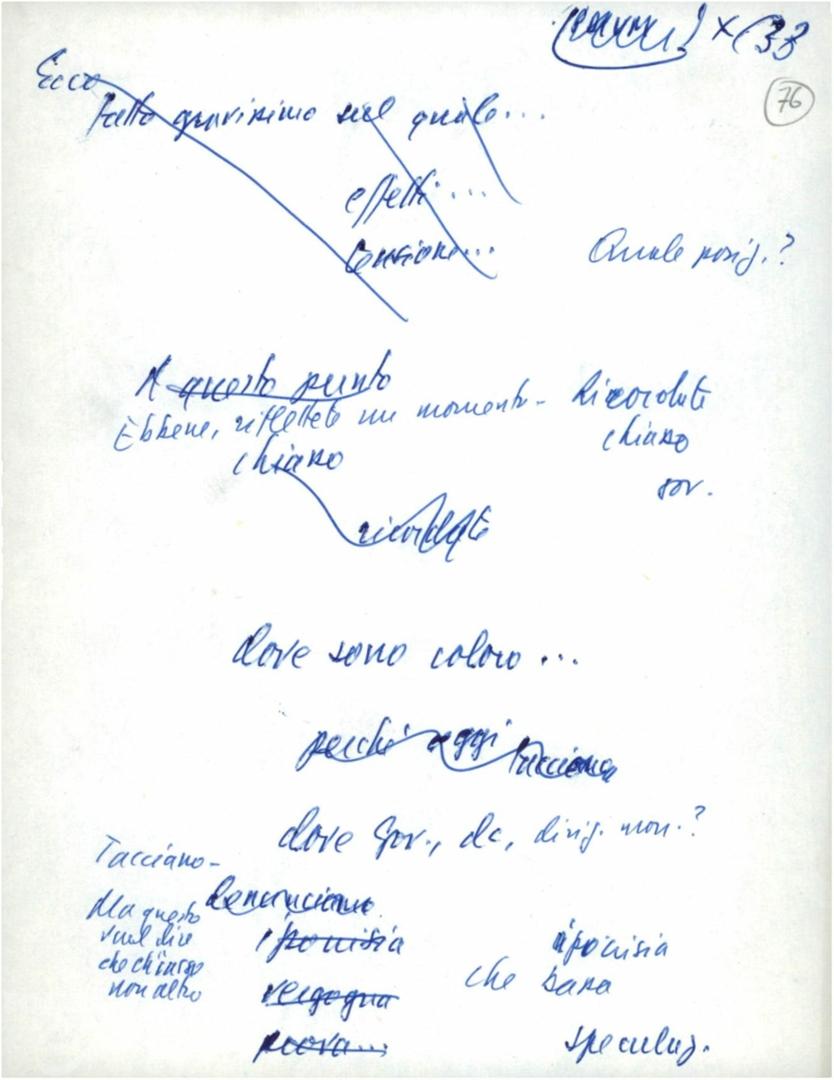 × (33
76
Ecco
fatto gravissimo sul quale...
effetti...
Quale posiz.?
A questo punto
Ebbene, riflettete un momento - Ricordate
chiaro
chiaro
gov.
ricordate
dove sono coloro...
perché oggi tacciono
dove gov., dc, dirig. mon.?
Tacciano -
denunciamo
Ma questo
vuol dire
che
non altro
ipocrisia
ipocrisia
vergogna
che
prova...
speculaz.